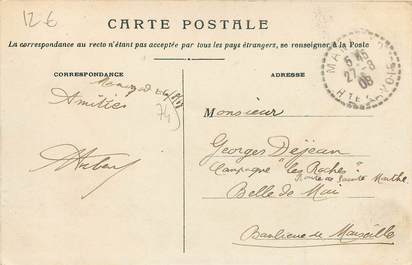 12 €
CARTE POSTALE
La correspondance au recto n'étant pas acceptée par tous les pays étrangers, se renseigner à la Poste
CORRESPONDANCE
ADRESSE
5 45
27 -8
06
HTE SAVOIE
Amitiés
74)
Monsieur
Georges Dejean
Campagne "les Roches"
Route de Sainte Marthe
Belle de Mai
Banlieue de Marseille